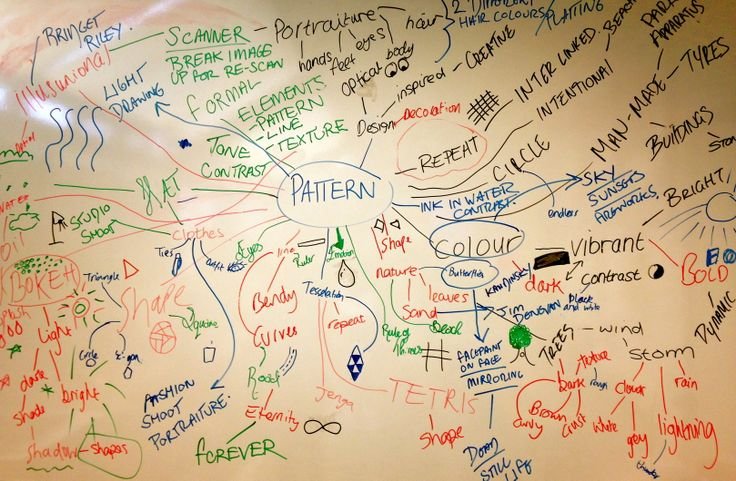 BRINGET
RILEY.
Illusunional
SCANNER
BREAK IMAGE
UP FOR RE-SCAN
Portraiture
hands
feet
eyes
hair
2 DIFFERENT
HAIR COLOURS
PLAITING
Optical body
LIGHT
DRAWING
FORMAL
ELEMENTS
- PATTERN
- LINE
- TEXTURE
TONE
CONTRAST
inspired
CREATIVE
Design
Decoration
REPEAT
INTER LINKED.
INTENTIONAL
CIRCLE
endless
MAN-MADE
TYRES
BUILDINGS
PARK
APPARATUS
PATTERN
INK IN WATER
CONTRAST.
SKY
SUNSETS
FIREWORKS.
BRIGHT
FLAT
STUDIO
SHOOT
clothes
Ties
Oil
BOKEH
Triangle
Circle
SHAPE
Square
Light
dark
shade
shadow
bright
shapes
FASHION
SHOOT
PORTRAITURE.
Eyes
line
Ruler
Bendy
Curves
Eternity
FOREVER
Tesselation
repeat
jenga
TETRIS
shape
Shape
nature
leaves
Sand
Dead
Rule of
Thirds
Colour
Butterflies
KANDINSKY
JIM
DENEVAN
FACEPAINT
ON FACE
MIRRORING
STILL
LIFE
vibrant
dark
contrast
black
and white
BOLD
DYNAMIC
TREES
wind
texture
rough
bark
Brown
curvy
crust
Storm
cloud
white
grey
rain
lightning
thunder